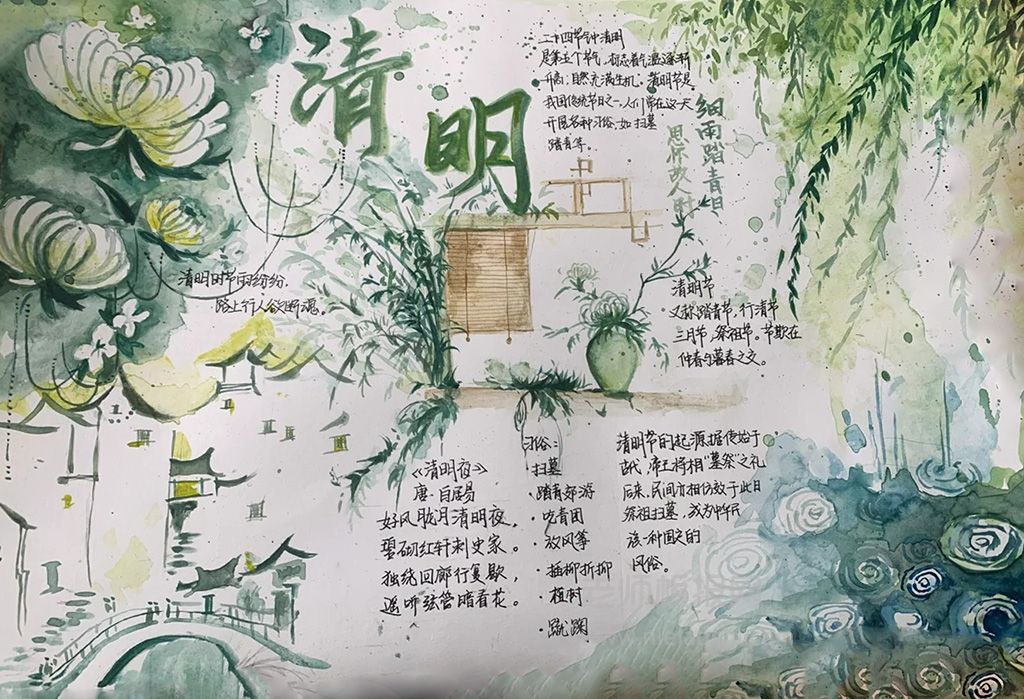 清明
二十四节气中清明
是第五个节气,标志着气温逐渐
升高,自然充满生机。清明节是
我国传统节日之一,人们常在这一天
开展各种习俗,如扫墓
踏青等。
细雨踏青日
思怀故人时
清明时节雨纷纷,
路上行人欲断魂。
清明节
又称踏青节,行清节
三月节,祭祖节,节期在
仲春与暮春之交。
《清明夜》
唐·白居易
好风胧月清明夜,
碧砌红轩刺史家。
独绕回廊行复歇,
遥听弦管暗看花。
习俗:
·扫墓
·踏青郊游
·吃青团
·放风筝
·插柳折柳
·植树
·蹴鞠
清明节的起源,据传始于
古代,帝王将相“墓祭”之礼
后来,民间亦相仿效于此日
祭祖扫墓,成为中华民
族一种固定的
风俗。